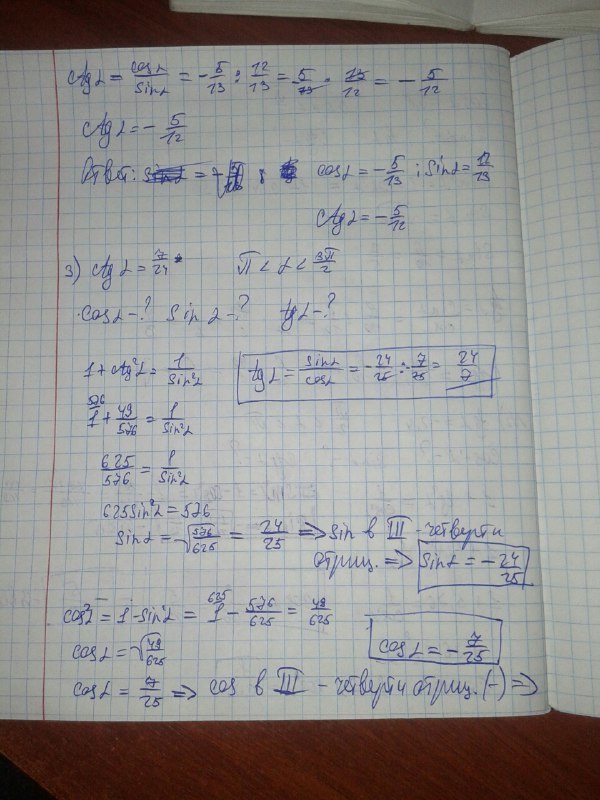 ctg α = cos α / sin α = -5/13 : 12/13 = 5/13 · 13/12 = -5/12
ctg α = -5/12
Ответ: cos α = -5/13 ; sin α = 12/13
ctg α = -5/12
3) ctg α = 7/24 π < α < 3π/2
cos α - ? sin α - ? tg α - ?
1 + ctg²α = 1/sin²α
tg α = sin α / cos α = -24/25 : -7/25 = 24/7
576
1 + 49/576 = 1/sin²α
625/576 = 1/sin²α
625 sin²α = 576
sin α = √576/625 = 24/25 => sin в III - четверти
отриц. => sin α = -24/25
625
cos²α = 1 - sin²α = 1 - 576/625 = 49/625
cos α = √49/625
cos α = -7/25
cos α = 7/25 => cos в III - четверти отриц. (-) =>